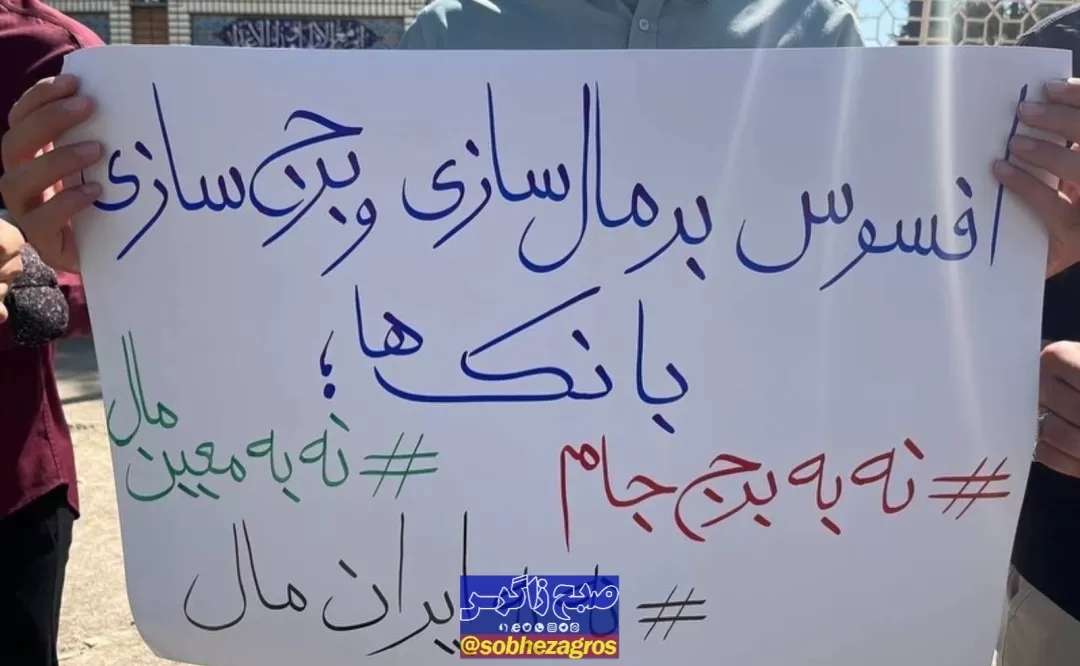 افسوس بر مال سازی و برج سازی
بانک ها؛
#نه به برج جام
#نه به معین مال
# ایران مال
صبح زاگرس
@sobhezagros